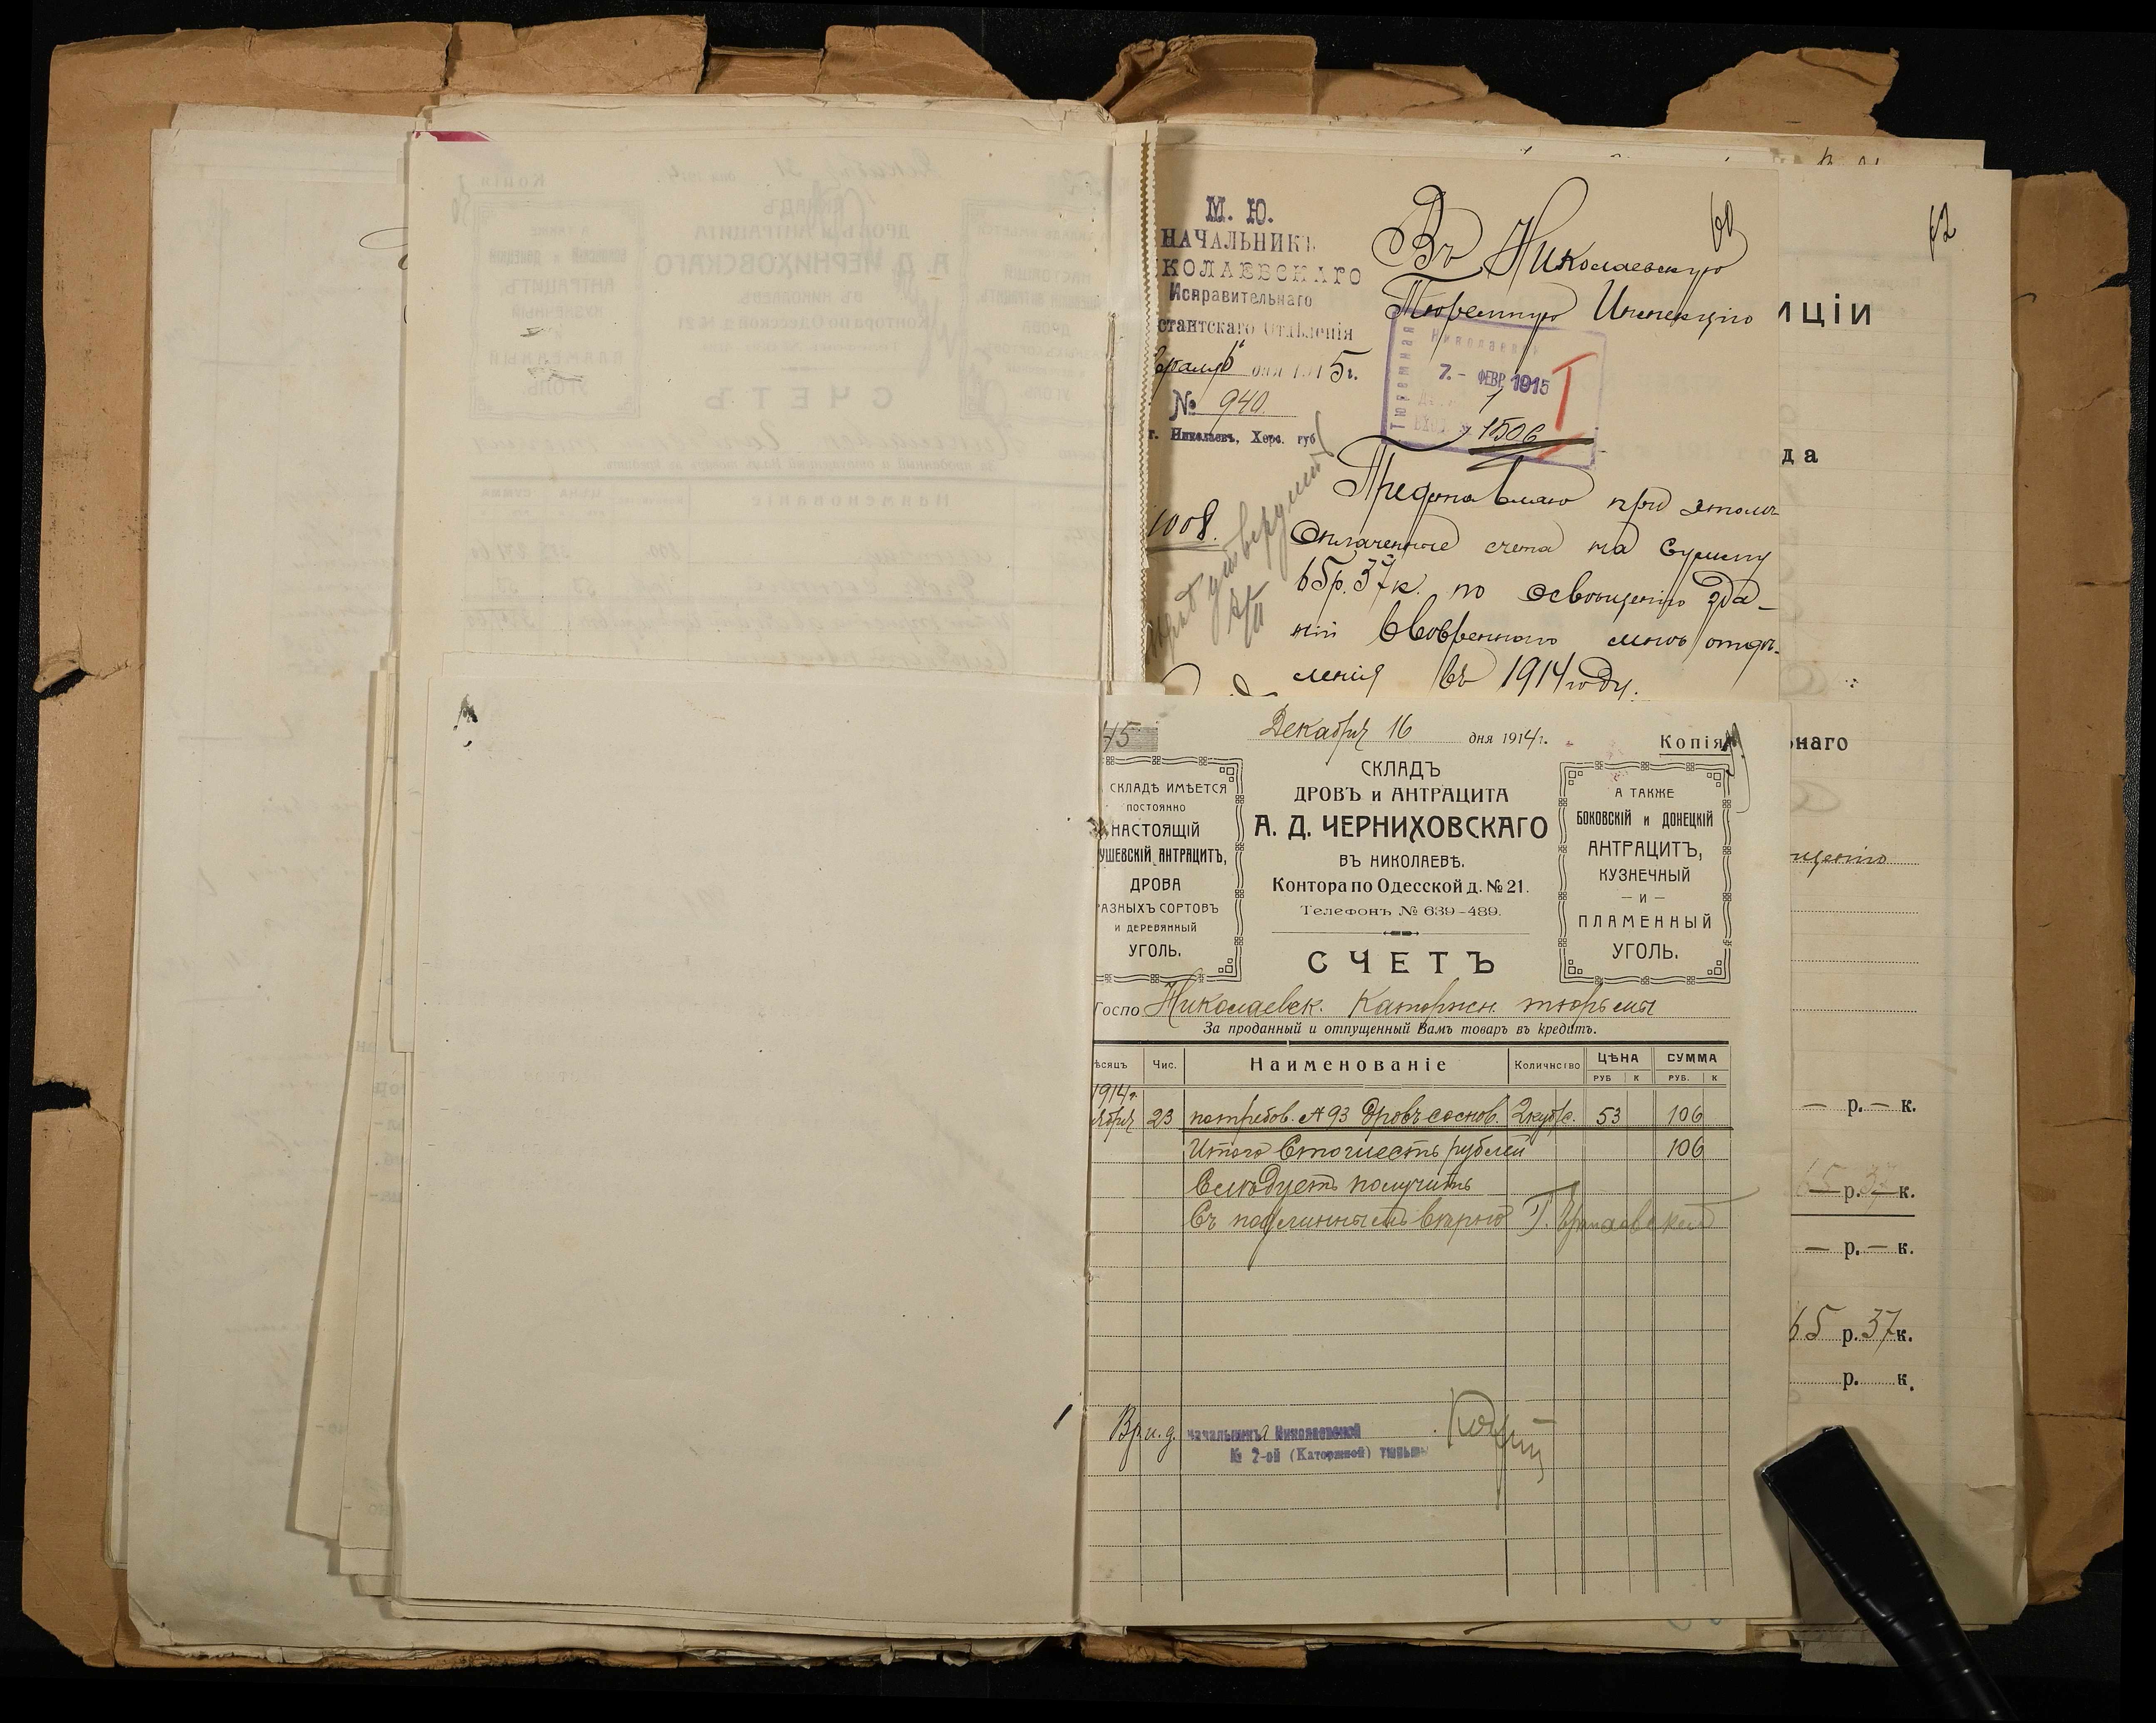 60
62
М. Ю.
НАЧАЛЬНИКЪ
КОЛАЕВСКАГО
Исправительнаго
стантскаго Отдѣленія
дня 1915г.
№ 940.
г. Николаевъ, Херс. губ
Въ Николаевскую
Тюремную Инспекцію
Тюремная
Николаевск
7.- ФЕВР 1915
1506
1008.
Представляю при этомъ
оплаченные счета на сумму
65р. 37к. по освѣщенію зда-
ній ввѣреннаго мнѣ отдѣ-
ленія въ 1914 году.
иціи
да
ьнаго
щенію
— р. — к.
65 р. 37 к.
— р. — к.
65 р. 37 к.
р. к.
45
Декабря 16 дня 1914 г.
Копія
СКЛАДЪ
ДРОВЪ и АНТРАЦИТА
А. Д. ЧЕРНИХОВСКАГО
ВЪ НИКОЛАЕВѢ.
Контора по Одесской д. № 21.
Телефонъ № 639-489.
СКЛАДѢ ИМѢЕТСЯ
ПОСТОЯННО
НАСТОЯЩІЙ
УШЕВСКІЙ АНТРАЦИТЪ,
ДРОВА
АЗНЫХЪ СОРТОВЪ
И ДЕРЕВЯННЫЙ
УГОЛЬ.
А ТАКЖЕ
БОКОВСКІЙ и ДОНЕЦКІЙ
АНТРАЦИТЪ,
КУЗНЕЧНЫЙ
— И —
ПЛАМЕННЫЙ
УГОЛЬ.
СЧЕТЪ
Госпо Николаевск. Каторжн. тюрьмы
За проданный и отпущенный Вамъ товаръ въ кредитъ.
ѣсяцъ Чис. Наименованіе Количнство ЦѢНА СУММА
РУБ К РУБ. К
1914 г.
ября 23 потребов. № 93 Дровъ соснов. 2 куб. с. 53 106
Итого Сто шесть рублей 106
Слѣдуетъ получить
Съ подлиннымъ вѣрно
Вр. и. д. начальника Николаевской
№ 2-ой (Каторжной) тюрьмы